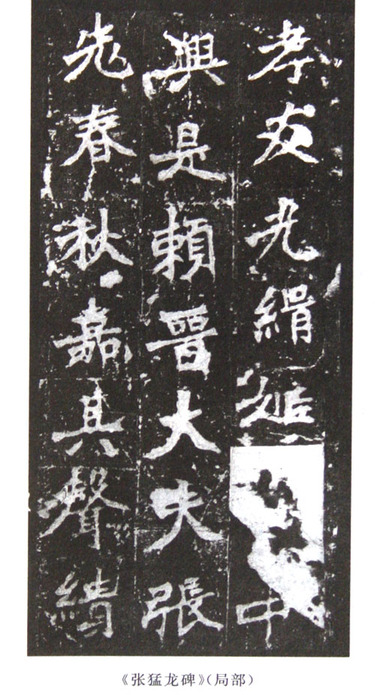 孝友光緝姬中
興是賴晉大夫張
老春秋嘉其聲績
《张猛龙碑》(局部)